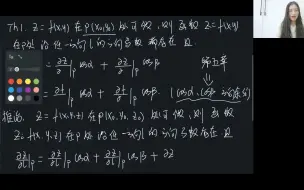 Th1. z=f(x,y) 在 p(x₀,y₀) 处可微, 则函数 z=f(x,y)
在 p处 沿 任一方向 l 的方向导数 都存在 且
= ∂z/∂x|p cosα + ∂z/∂y|p cosβ
= ∂f/∂x|p cosα + ∂f/∂y|p cosβ (cosα, cosβ 方向余弦)
推论. z=f(x,y,z) 在 p(x₀,y₀,z₀) 处可微, 则 函数
z=f(x,y,z) 在 p处 沿 任一方向 l 的方向导数存在 且
∂z/∂l|p = ∂z/∂x|p cosα + ∂z/∂y|p cosβ + ∂z